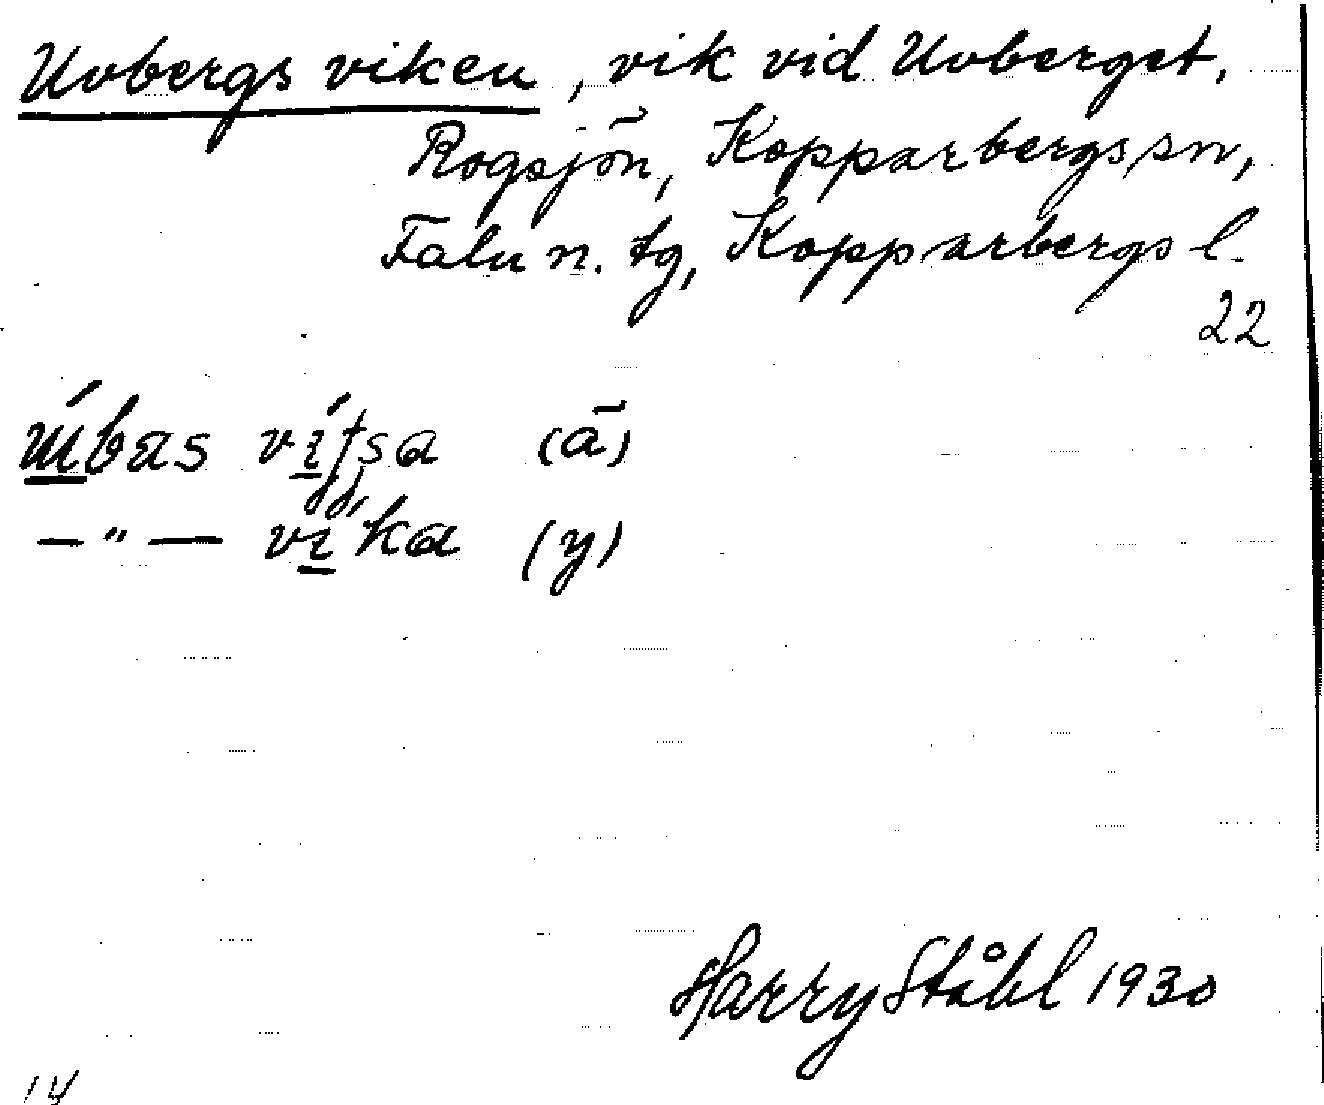 Uvbergsviken, vik vid Uvberget,
Rogsjön, Kopparbergs sn,
Falu n. tg, Kopparbergs l.
22
(ä)
— " — vika (y)
Harry Ståhl 1930
14